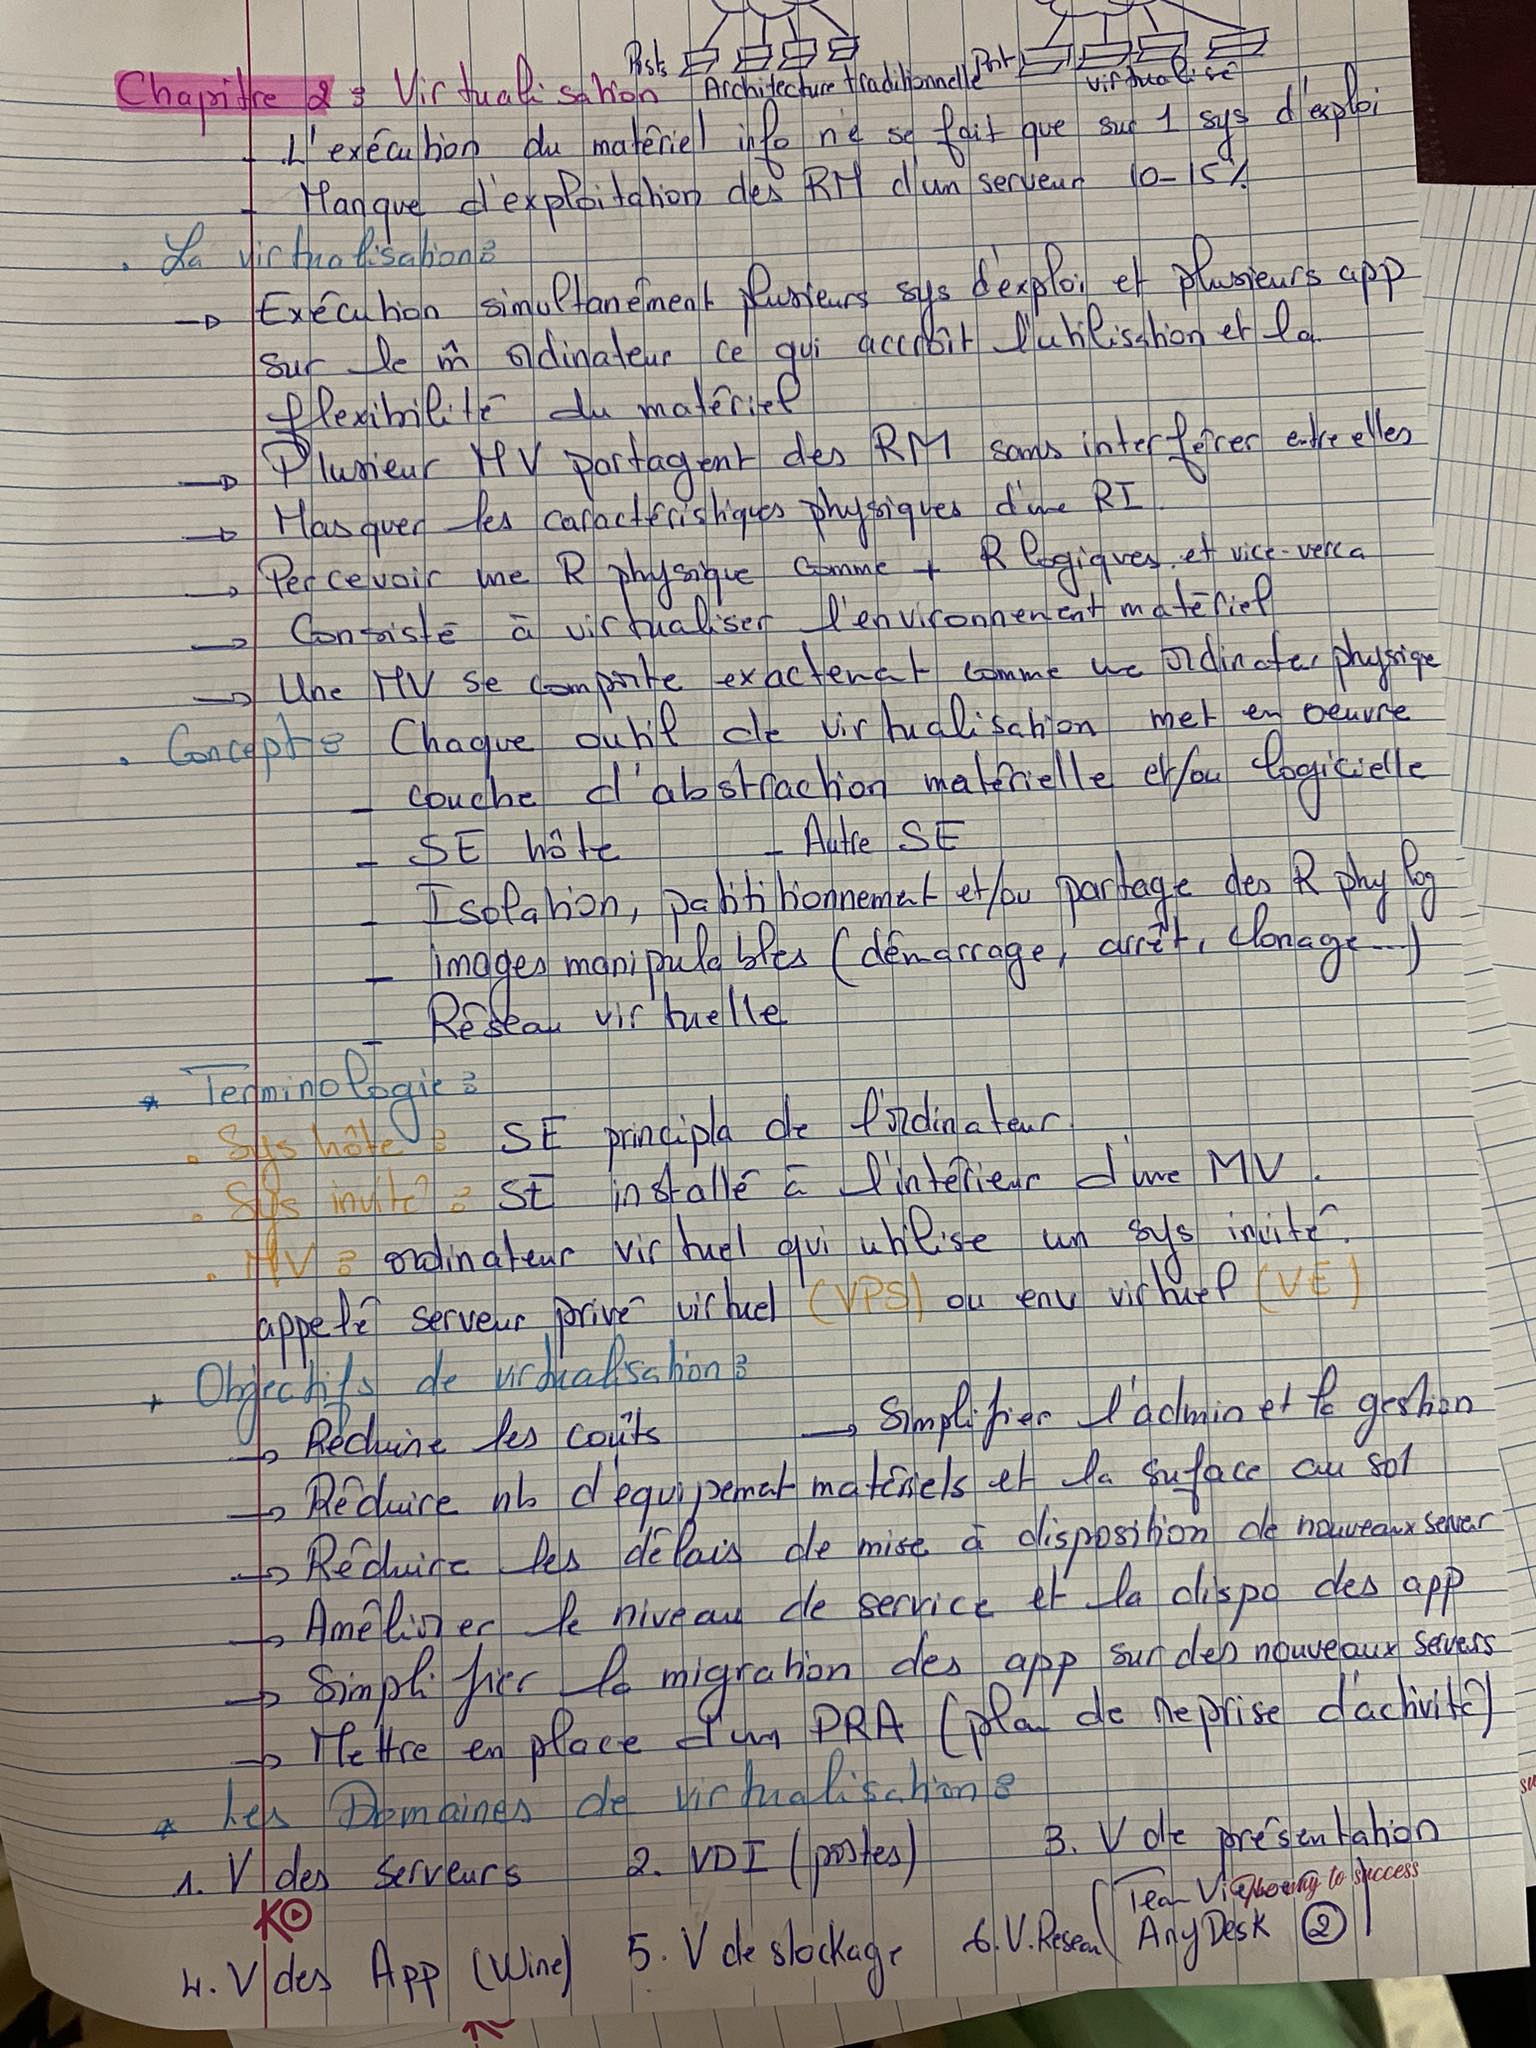 Posts Architecture traditionnelle Port virtualisé
Chapitre 2 : Virtualisation
- L'exécution du matériel info ne se fait que sur 1 sys d'exploi
- Manque d'exploitation des RM d'un serveur 10-15%
. La virtualisation :
→ Exécution simultanément plusieurs sys d'exploi et plusieurs app
sur le m̂ ordinateur ce qui accroît l'utilisation et la
flexibilité du matériel
→ Plusieur MV partagent des RM sans interférer entre elles
→ Masquer les caractéristiques physiques d'une RI
→ Percevoir une R physique comme + R logiques et vice-verca
→ Consiste à virtualiser l'environnement matériel
→ Une MV se comporte exactement comme un ordinateur physique
. Concept : Chaque outil de virtualisation met en oeuvre
- couche d'abstraction matérielle et/ou logicielle
- SE hôte - Autre SE
- Isolation, patititionnement et/ou partage des R phy log
- images manipulables (démarrage, arrêt, clonage...)
- Réseau virtuelle
* Terminologie :
. Sys hôte : SE principla de l'ordinateur.
. Sys invité : SE installé à l'intérieur d'une MV.
. MV : ordinateur virtuel qui utilise un sys invité.
appelé serveur privé virtuel (VPS) ou env virtuel (VE)
* Objectifs de virtualisation :
→ Réduire les coûts → Simplifier l'admin et la gestion
→ Réduire nb d'équipemet matériels et la suface au sol
→ Réduire les délais de mise à disposition de nouveaux server
→ Améliorer le niveau de service et la dispo des app
→ Simplifier la migration des app sur des nouveaux servers
→ Mettre en place d'un PRA (plan de reprise d'activité)
* Les Domaines de virtualisation :
1. V des serveurs 2. VDI (postes) 3. V de présentation
(Team Vie to success
KO
4. V des App (Wine) 5. V de stockage 6. V. Reseau AnyDesk 2 )